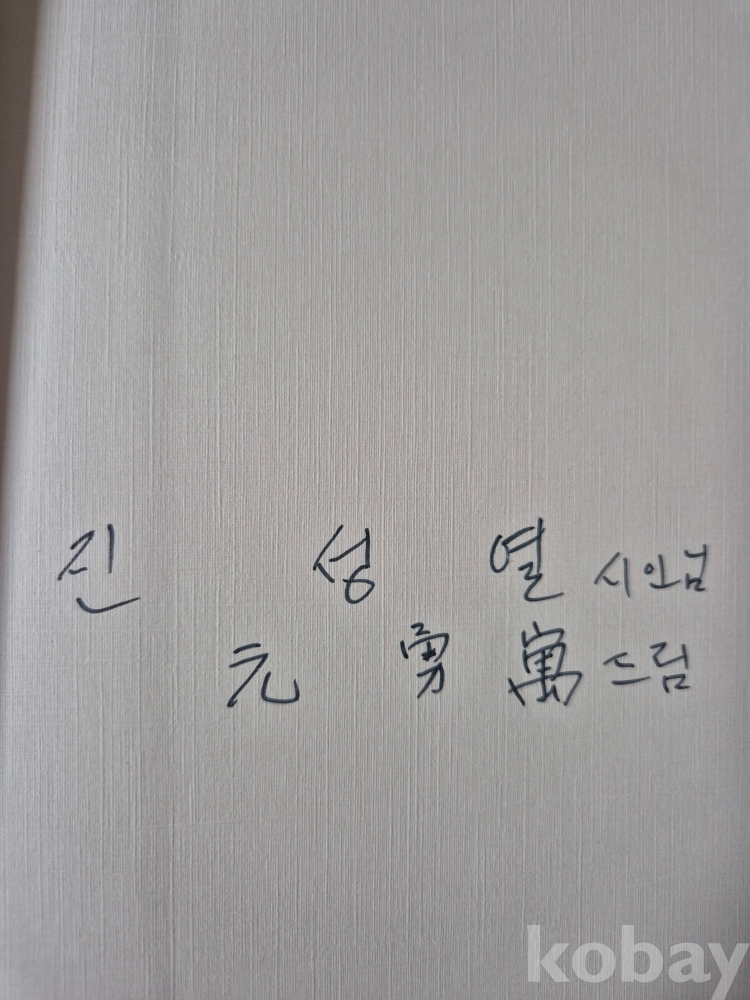 진 성 열 시인님
元 勇 寓 드림
kobay